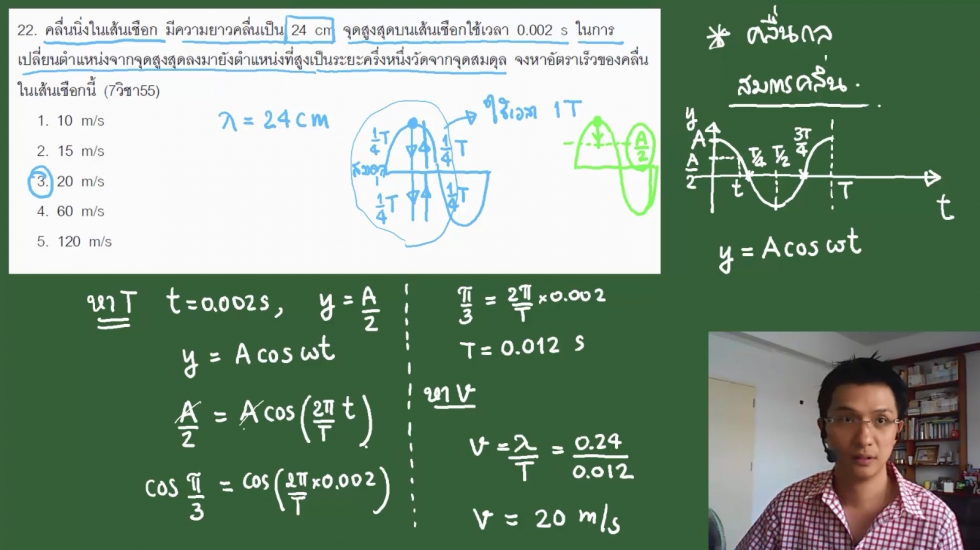 22. คลื่นนิ่งในเส้นเชือก มีความยาวคลื่นเป็น 24 cm จุดสูงสุดบนเส้นเชือกใช้เวลา 0.002 s ในการ
เปลี่ยนตำแหน่งจากจุดสูงสุดลงมายังตำแหน่งที่สูงเป็นระยะครึ่งหนึ่งวัดจากจุดสมดุล จงหาอัตราเร็วของคลื่น
ในเส้นเชือกนี้ (7วิชา55)
1. 10 m/s
2. 15 m/s
3. 20 m/s
4. 60 m/s
5. 120 m/s
λ = 24 cm
ใช้เวลา 1T
1/4 T
1/4 T
สมดุล
1/4 T
1/4 T
A/2
* คลื่นกล
สมการคลื่น
y
A
A/2
t
T/4
T/2
3T/4
T
t
y = A cos ωt
หา T t = 0.002 s, y = A/2
y = A cos ωt
A/2 = A cos (2π/T t)
cos π/3 = cos (2π/T × 0.002)
π/3 = 2π/T × 0.002
T = 0.012 s
หา v
v = λ/T = 0.24/0.012
v = 20 m/s